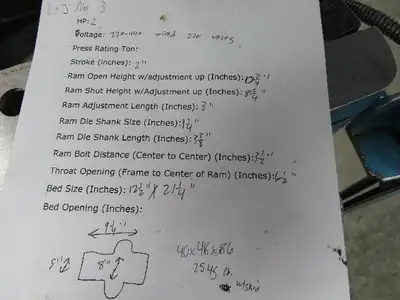 L&J No 3
HP: 2
Voltage: 220-440 wired 220 volts
Press Rating Ton:
Stroke (inches): 2"
Ram Open Height w/adjustment up (Inches): 10 3/4"
Ram Shut Height w/Adjustment up (Inches): 8 3/4"
Ram Adjustment Length (Inches): 3"
Ram Die Shank Size (Inches): 1 1/4"
Ram Die Shank Length (Inches): 3 3/8"
Ram Bolt Distance (Center to Center) (Inches): 3 1/2"
Throat Opening (Frame to Center of Ram) (Inches): 6 1/2"
Bed Size (Inches): 12 1/2" X 21 1/4"
Bed Opening (Inches):
9 1/4"
5" 8"
48x48x86
2545 lb.
w/skid